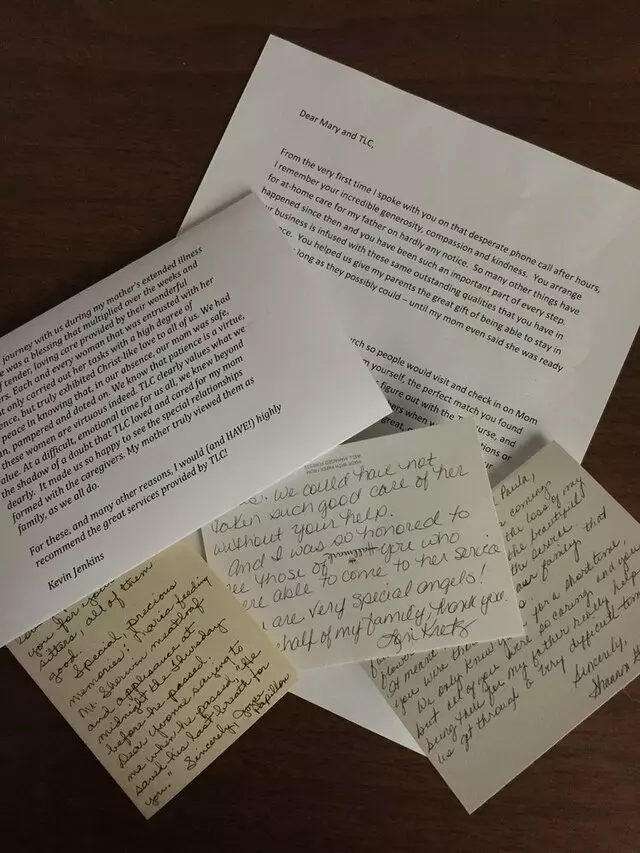 Dear Mary and TLC,
From the very first time I spoke with you on that desperate phone call after hours,
I remember your incredible generosity, compassion and kindness. You arrange
for at-home care for my father on hardly any notice. So many other things have
happened since then and you have been such an important part of every step.
business is infused with these same outstanding qualities that you have in
You helped us give my parents the great gift of being able to stay in
long as they possibly could – until my mom even said she was ready
so people would visit and check in on Mom
yourself, the perfect match you found
figure out with the
journey with us during my mother's extended illness
was a blessing that multiplied over the weeks and
loving care provided by their wonderful
Each and every woman that was entrusted with her
only carried out her tasks with a high degree of
but truly exhibited Christ-like love to all of us. We had
peace in knowing that, in our absence, our mom was safe,
pampered and doted on. We know that patience is a virtue,
these women are virtuous indeed. TLC clearly values what we
value. At a difficult, emotional time for us all, we knew beyond
the shadow of a doubt that TLC loved and cared for my mom
dearly. It made us so happy to see the special relationships
formed with the caregivers. My mother truly viewed them as
family, as we all do.
For these, and many other reasons, I would (and HAVE!) highly
recommend the great services provided by TLC!
Kevin Jenkins
we could have not
taken such good care of her
without your help.
And I was so honored to
see those of you who
were able to come to her service
are very special angels!
half of my family, thank you.
Hallmark
you for your
sitters, all of them
good.
Special, precious
memories: Maria feeding
Mr. Sherwin meatloaf
and applesauce at
midnight the Thursday
before he passed.
Dear Yvonne saying to
me when he passed, "He
saved his last breath for
you." Sincerely, Joyce
Paula,
coming
the loss of my
the beautiful
the service
family that
for a short time,
but all of you were so caring and your
being there for my father really helped
us get through a very difficult time.
Sincerely,